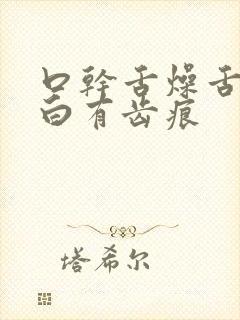 口幹舌燥舌
白有齿痕
塔希尔